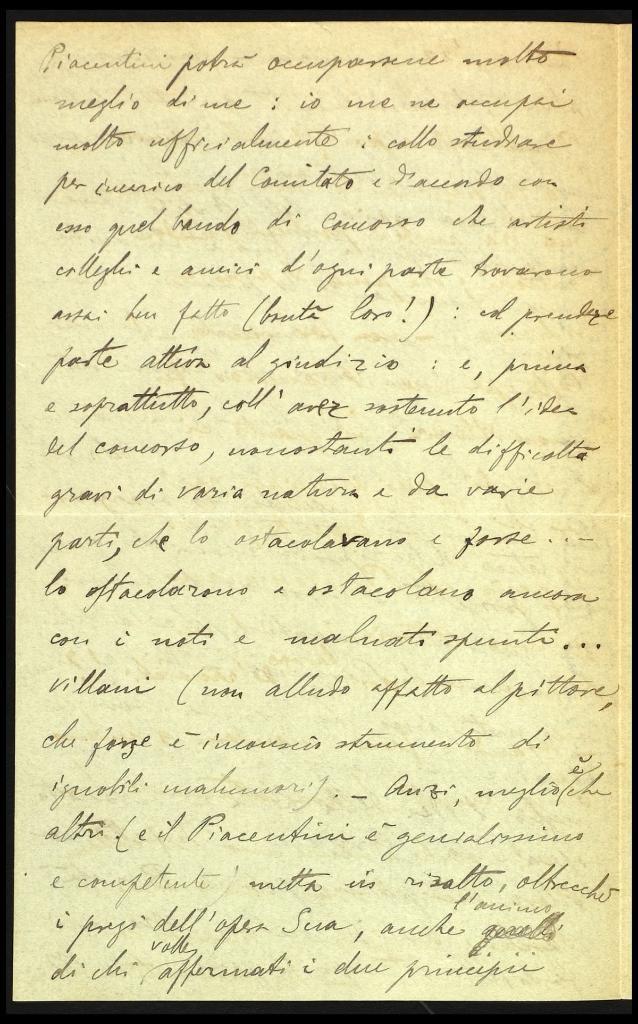 Piacentini potrà occuparsene molto
meglio di me : io me ne occupai
molto ufficialmente : collo studiare
per incarico del Comitato e d'accordo con
esso quel bando di concorso che artisti
colleghi e amici d'ogni parte trovarono
assai ben fatto (bontà loro!) : col prendere
parte attiva al giudizio : e, prima
e soprattutto, coll' aver sostenuto l'idea
del concorso, nonostanti le difficoltà
gravi di varia natura e da varie
parti, che lo ostacolavano e forse ...
lo ostacolarono e ostacolano ancora
con i noti e malnati spunti ...
villani (non alludo affatto al pittore,
che forse è inconscio strumento di
ignobili malumori). - Anzi, meglio è che
altri (e il Piacentini è genialissimo
e competente) metta in risalto, oltrecché
i pregi dell'opera Sua, anche l'animo
di chi volle affermati i due principii